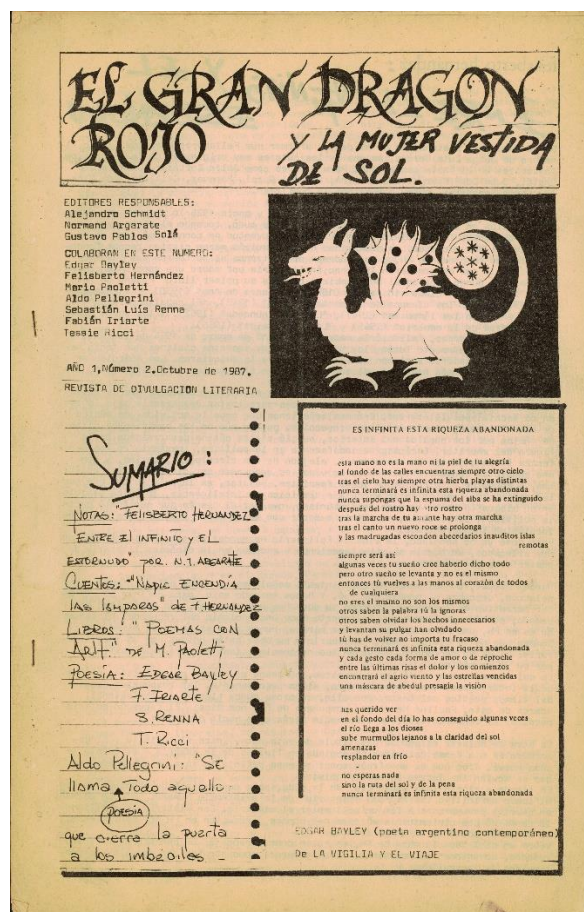 EL GRAN DRAGON
ROJO
Y LA MUJER VESTIDA
DE SOL.
EDITORES RESPONSABLES:
Alejandro Schmidt
Normand Argarate
Gustavo Pablos Solá
COLABORAN EN ESTE NUMERO:
Edgar Bayley
Felisberto Hernández
Mario Paoletti
Aldo Pellegrini
Sebastián Luis Renna
Fabián Iriarte
Tessie Ricci
AÑO 1,Número 2.Octubre de 1987.
REVISTA DE DIVULGACION LITERARIA
SUMARIO:
NOTAS: "FELISBERTO HERNANDEZ
ENTRE EL INFINITO y EL
ESTORNUDO" POR. N.T. ARGARATE
CUENTOS: "NADIE ENCENDÍA
LAS lámparas" de F. HERNANDEZ
LIBROS: "POEMAS CON
Arlt." DE M. PAOLETTI
POESÍA: EDGAR BAYLEY
F. IRIARTE
S. RENNA
T. Ricci
Aldo Pellegrini: "SE
llama Todo aquello
POESIA
que cierra la puerta
a los imbeciles -
ES INFINITA ESTA RIQUEZA ABANDONADA
esta mano no es la mano ni la piel de tu alegría
al fondo de las calles encuentras siempre otro cielo
tras el cielo hay siempre otra hierba playas distintas
nunca terminará es infinita esta riqueza abandonada
nunca supongas que la espuma del alba se ha extinguido
después del rostro hay otro rostro
tras la marcha de tu amante hay otra marcha
tras el canto un nuevo roce se prolonga
y las madrugadas esconden abecedarios inauditos islas
remotas
siempre será así
algunas veces tu sueño cree haberlo dicho todo
pero otro sueño se levanta y no es el mismo
entonces tú vuelves a las manos al corazón de todos
de cualquiera
no eres el mismo no son los mismos
otros saben la palabra tú la ignoras
otros saben olvidar los hechos innecesarios
y levantan su pulgar han olvidado
tú has de volver no importa tu fracaso
nunca terminará es infinita esta riqueza abandonada
y cada gesto cada forma de amor o de reproche
entre las últimas risas el dolor y los comienzos
encontrará el agrio viento y las estrellas vencidas
una máscara de abedul presagia la visión
has querido ver
en el fondo del día lo has conseguido algunas veces
el río llega a los dioses
sube murmullos lejanos a la claridad del sol
amenazas
resplandor en frío
no esperas nada
sino la ruta del sol y de la pena
nunca terminará es infinita esta riqueza abandonada
EDGAR BAYLEY (poeta argentino contemporáneo)
De LA VIGILIA Y EL VIAJE